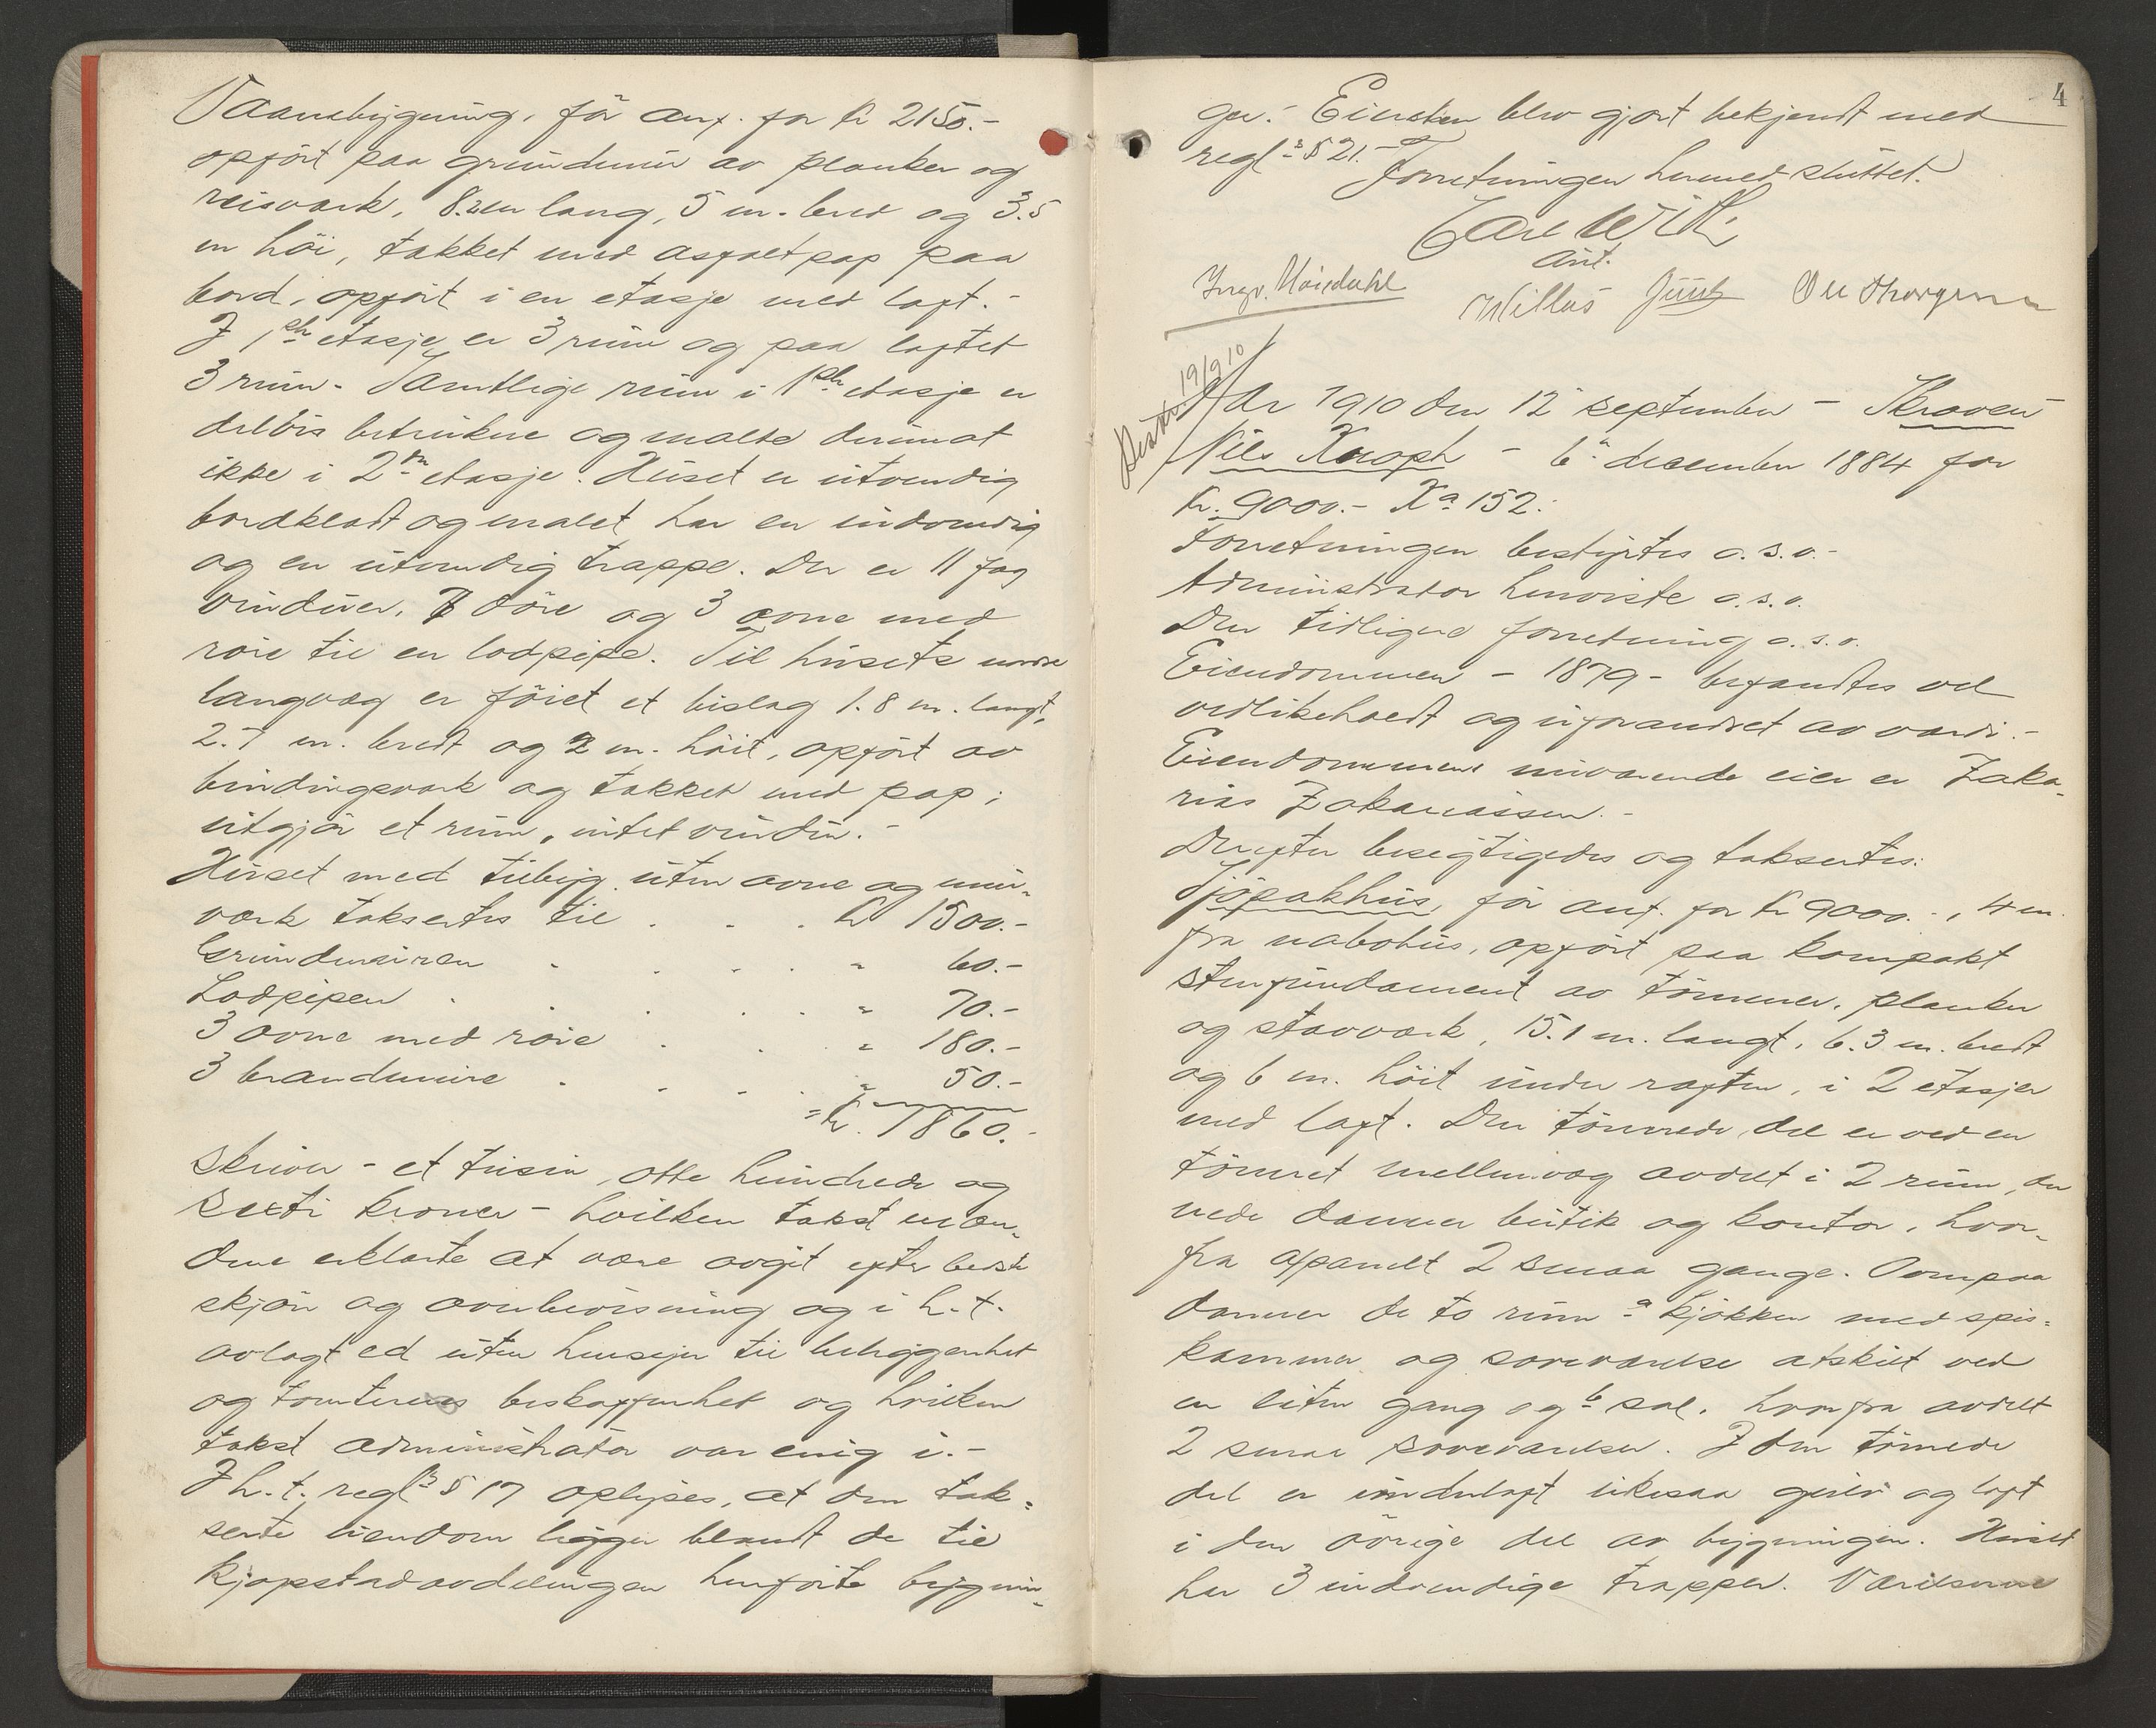 Vaanebygning, før anf. for kr 2150.-
opført paa grundmur av planker og
reisverk, 8. m lang, 5 m. bred og 3.5
m høi, tækket med asfaltpap paa
bord, opført i en etasje med loft.-
I 1ste etasje er 3 rum og paa loftet
3 rum. Samtlige rum i 1ste etasje er
delvis betrukne og malte derimot
ikke i 2den etasje. Huset er utvendig
bordklædt og malet har en indvendig
og en utvendig trappe. Der er 11 fag
vinduer, 7 døre og 3 ovne med
røie til en lodpipe. Til husets nordre
langvæg er føiet et bislag 1.8 m. langt,
2.7 m. bredt og 2 m. høit, opført av
bindingsverk og tækket med pap;
utgjør et rum, intet vindu.-
Huset med tilbyg. uten ovne og mur-
verk takseertes til . . . kr 1500.-
Grundmuren . . . . " 60.-
Lodpipen . . . . " 70.-
3 ovne med røie . . " 180.-
3 brandmure . . . " 50.-
= kr. 1860.-
skriver - et tusin, otte hundrede og
seksti kroner - hvilken takst mæn-
dene erklærte at være avgit efter bedste
skjøn og overbevisning og i h.t.
avlagt ed uten hensyn til beliggenhet
og tomtens beskaffenhet og hvilken
takst administrator var enig i.-
I h.t. regl.s § 17 oplyses, at den tak-
serte eiendom ligger blandt de til
kjøpstadavdelingen henførte bygnin-
4
ger.- Eieren blev gjort bekjendt med
regl.s § 21.-
Forretningen hermed sluttet.
Carl Wik
ant.
Ingv. Høisdahl Juul Ole Thorgersen
19/9 10
Aar 1910 den 12 september - Skroven
Nils Knoph - 6te december 1884 for
kr. 9000.- Ka 152.
Forretningen bestyrtes o.s.v.-
Administrator henviste o.s.v.
Den tidligere forretning o.s.v.
Eiendommen - 1879 - befandtes vel
vedlikeholdt og uforandret av værdi.-
Eiendommens nuværende eier er Zaka-
rias Zakariassen.-
Derefter besigtigedes og takseertes:
Sjøpakhus, før anf. for kr 9000.-, 4 m.
fra nabohus, opført paa kompakt
stenfundament av tømmer, planker
og stavverk, 15.1 m. langt, 6.3 m. bredt
og 6 m. høit under raften, i 2 etasjer
med loft. Den tømrede del er ved en
tømret mellemvæg avdelt i 2 rum, der
nede danner butik og kontor, hvor-
fra afpanelt 2 smaa gange. Ovenpaa
danner de to rum a kjøkken med spis-
kammer og soveværelse atskilt ved
en liten gang og b sal, hvorfra avdelt
2 smaa soveværelser. I den tømrede
del er underloft likesaa gulv og loft
i den øvrige del av bygningen. Huset
har 3 indvendige trapper. Værelserne